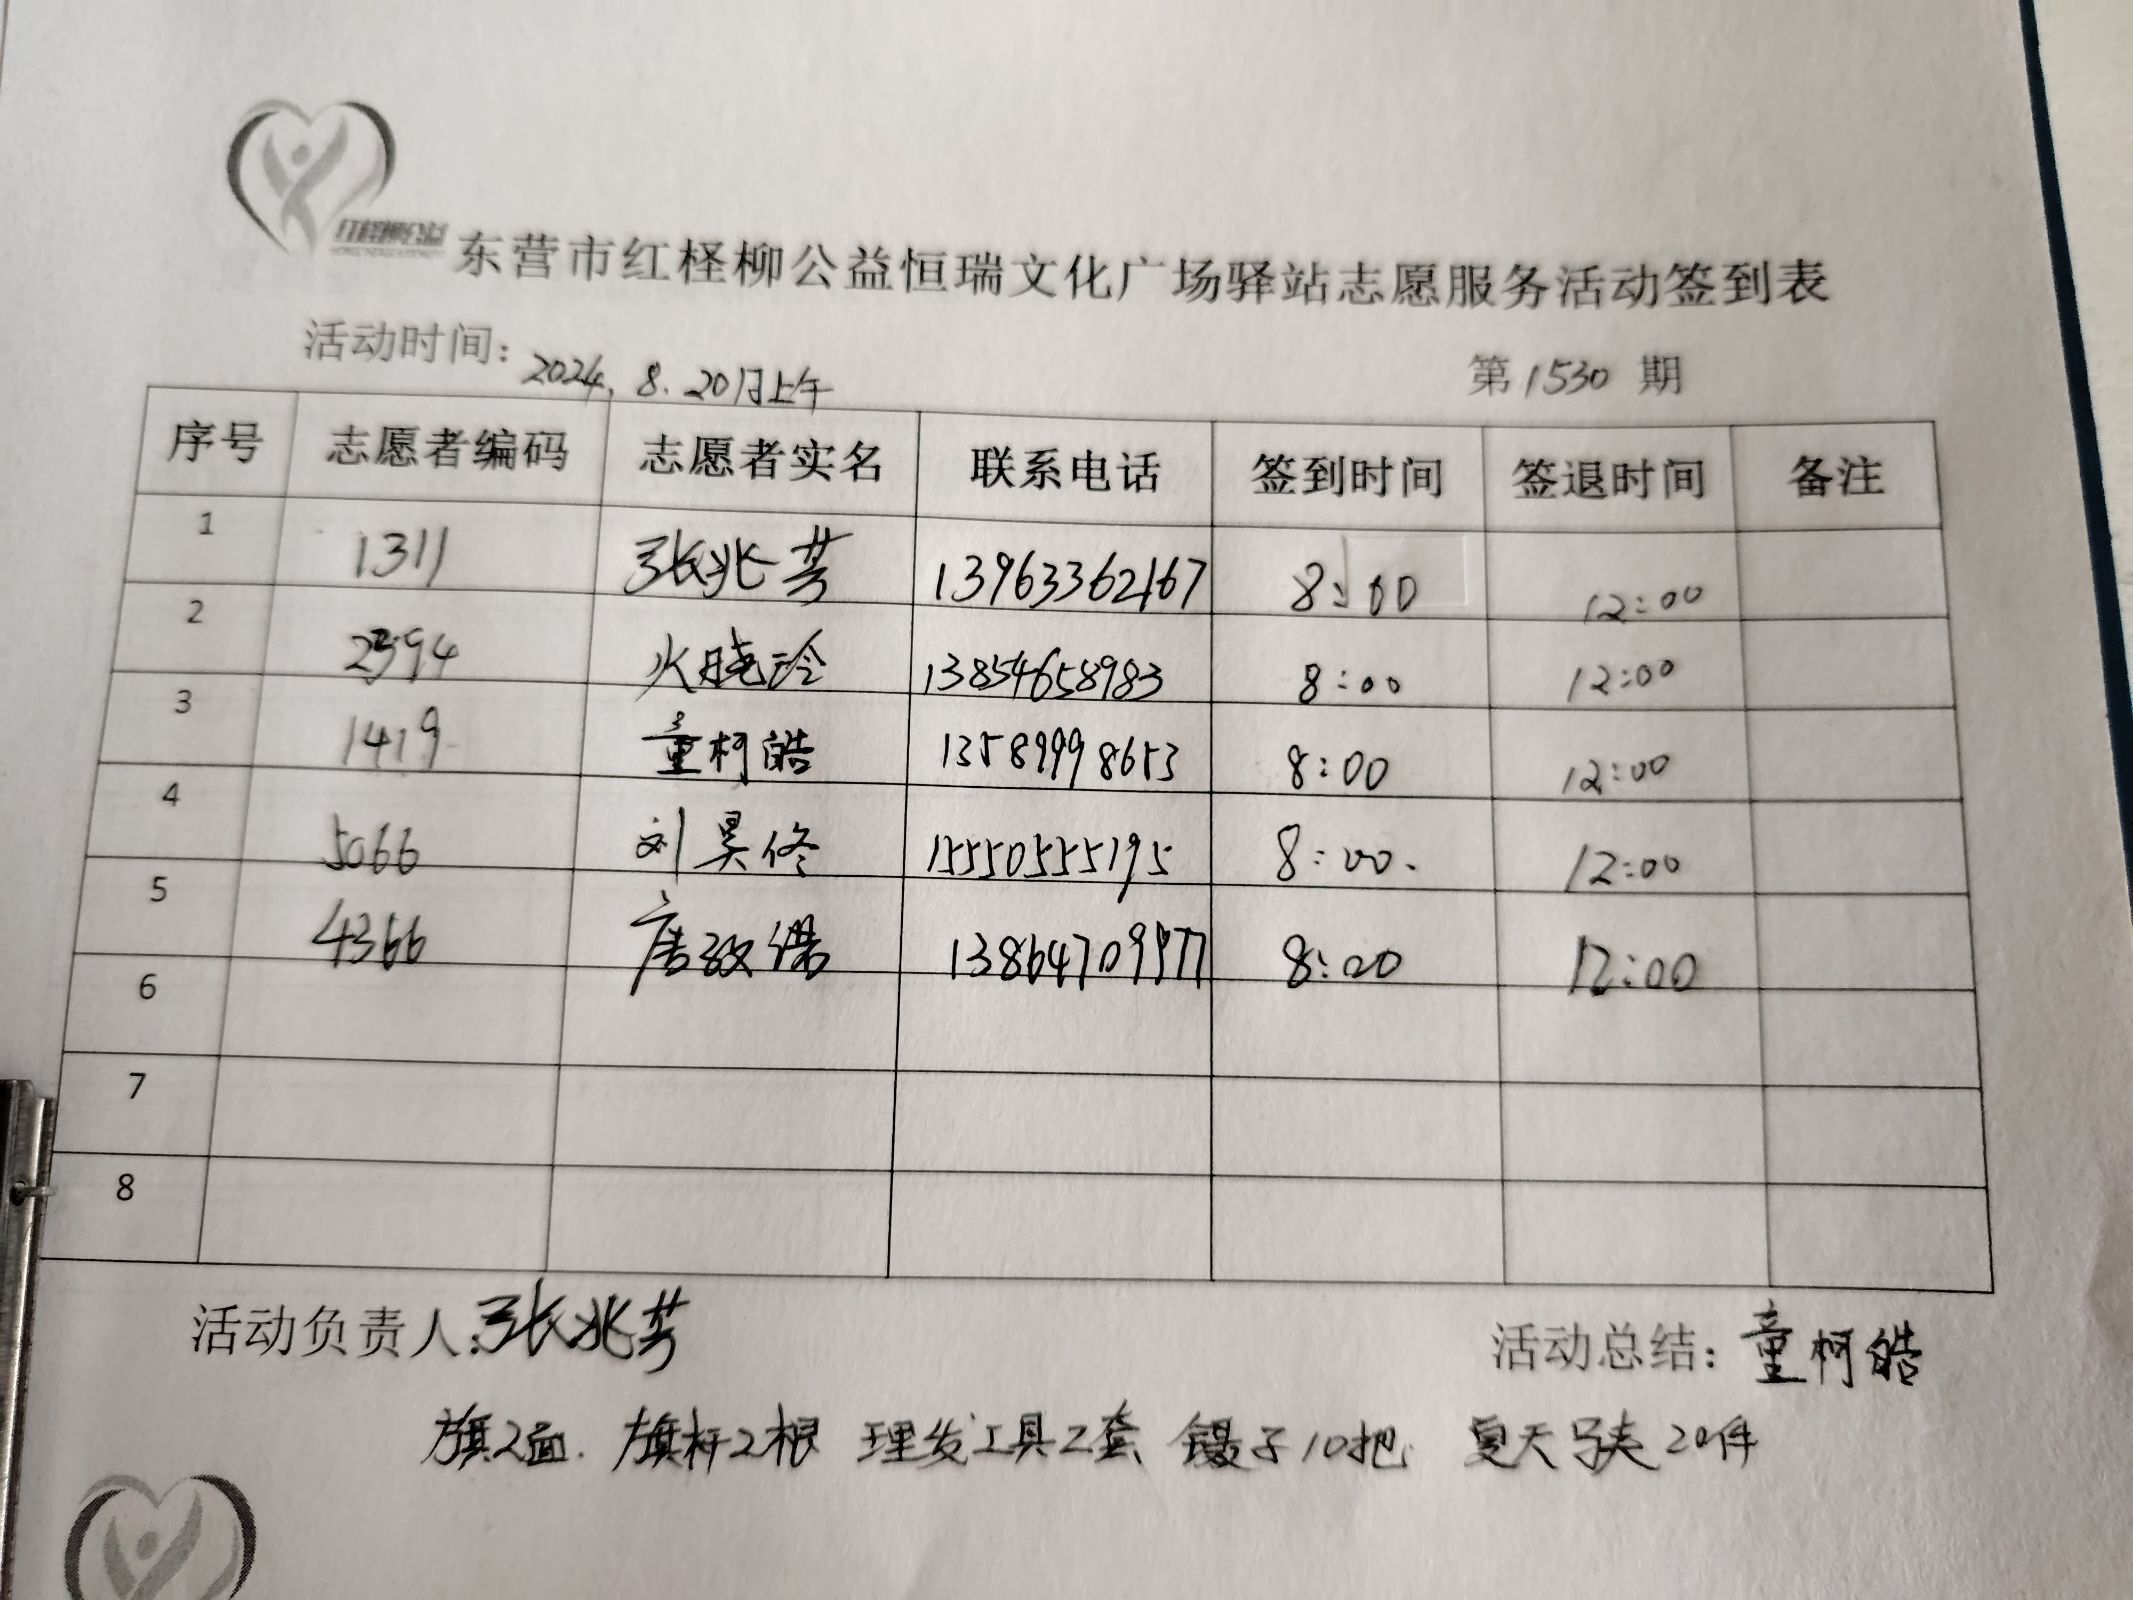 红柽柳公益
东营市红柽柳公益恒瑞文化广场驿站志愿服务活动签到表
活动时间：2024.8.20日上午 第1530期
序号 志愿者编码 志愿者实名 联系电话 签到时间 签退时间 备注
1 1311 张兆芳 13963362167 8:00 12:00
2 2394 火晓玲 13854658983 8:00 12:00
3 1419 童柯皓 13589998653 8:00 12:00
4 5066 刘昊佟 15550555195 8:00. 12:00
5 4366 唐 13864709977 8:00 12:00
6
7
8
活动负责人：张兆芳 活动总结：童柯皓
旗2面. 旗杆2根 理发工具2套 镊子10把. 夏天马夹20件